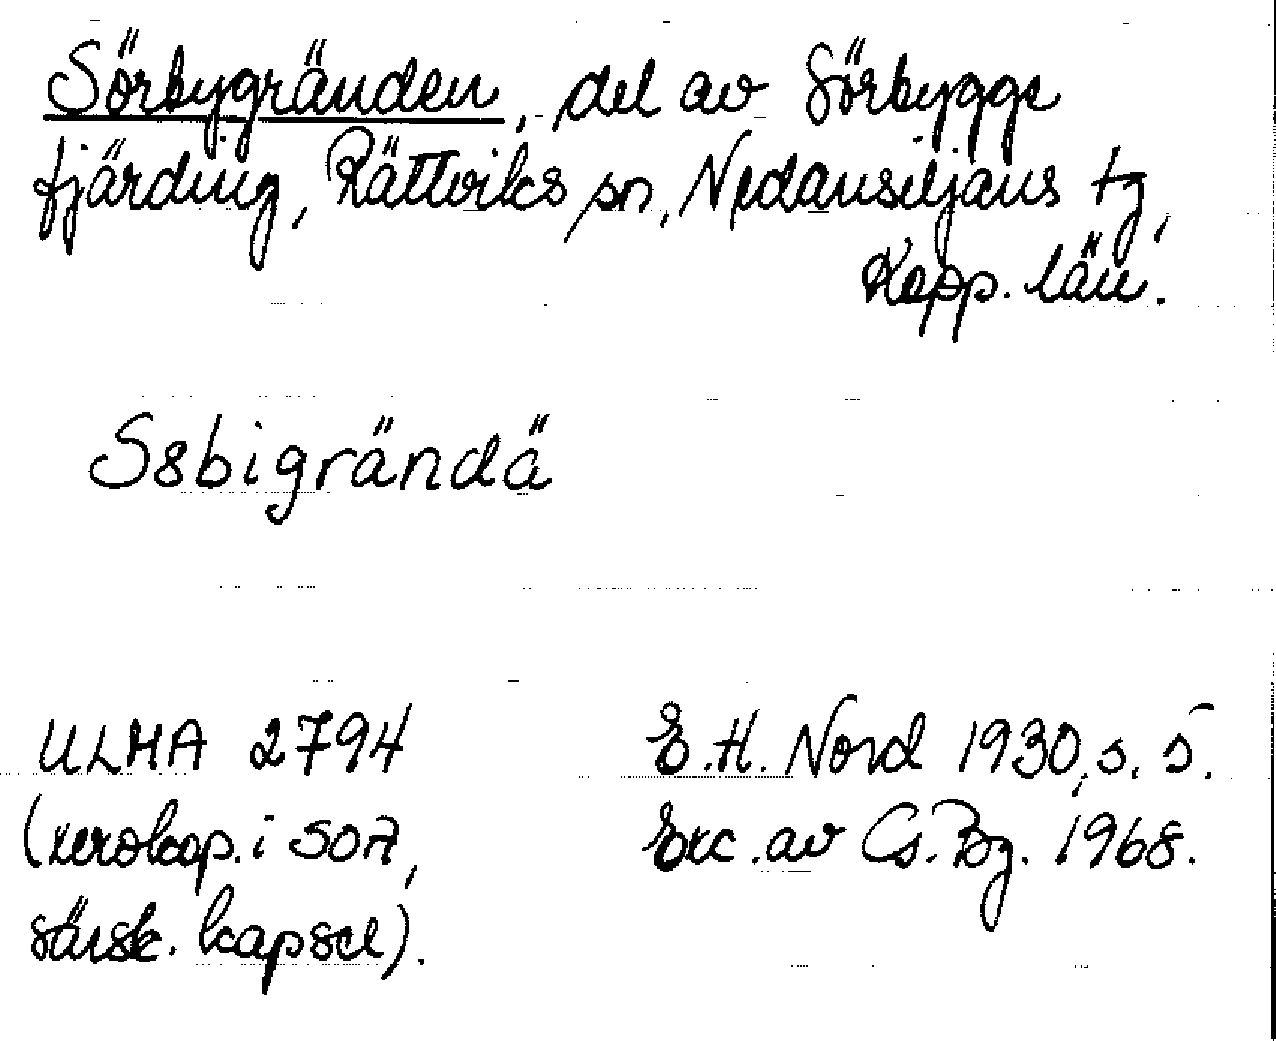 Sörbygränden, del av Sörbygge
fjärding, Rättviks sn, Nedansiljans tg,
Kopp. län.
S8bigrändä
ULMA 2794
(xerokop. i SOA,
särsk. kapsel).
E.H. Nord 1930, s. 5.
Exc. av Cs. Bg. 1968.